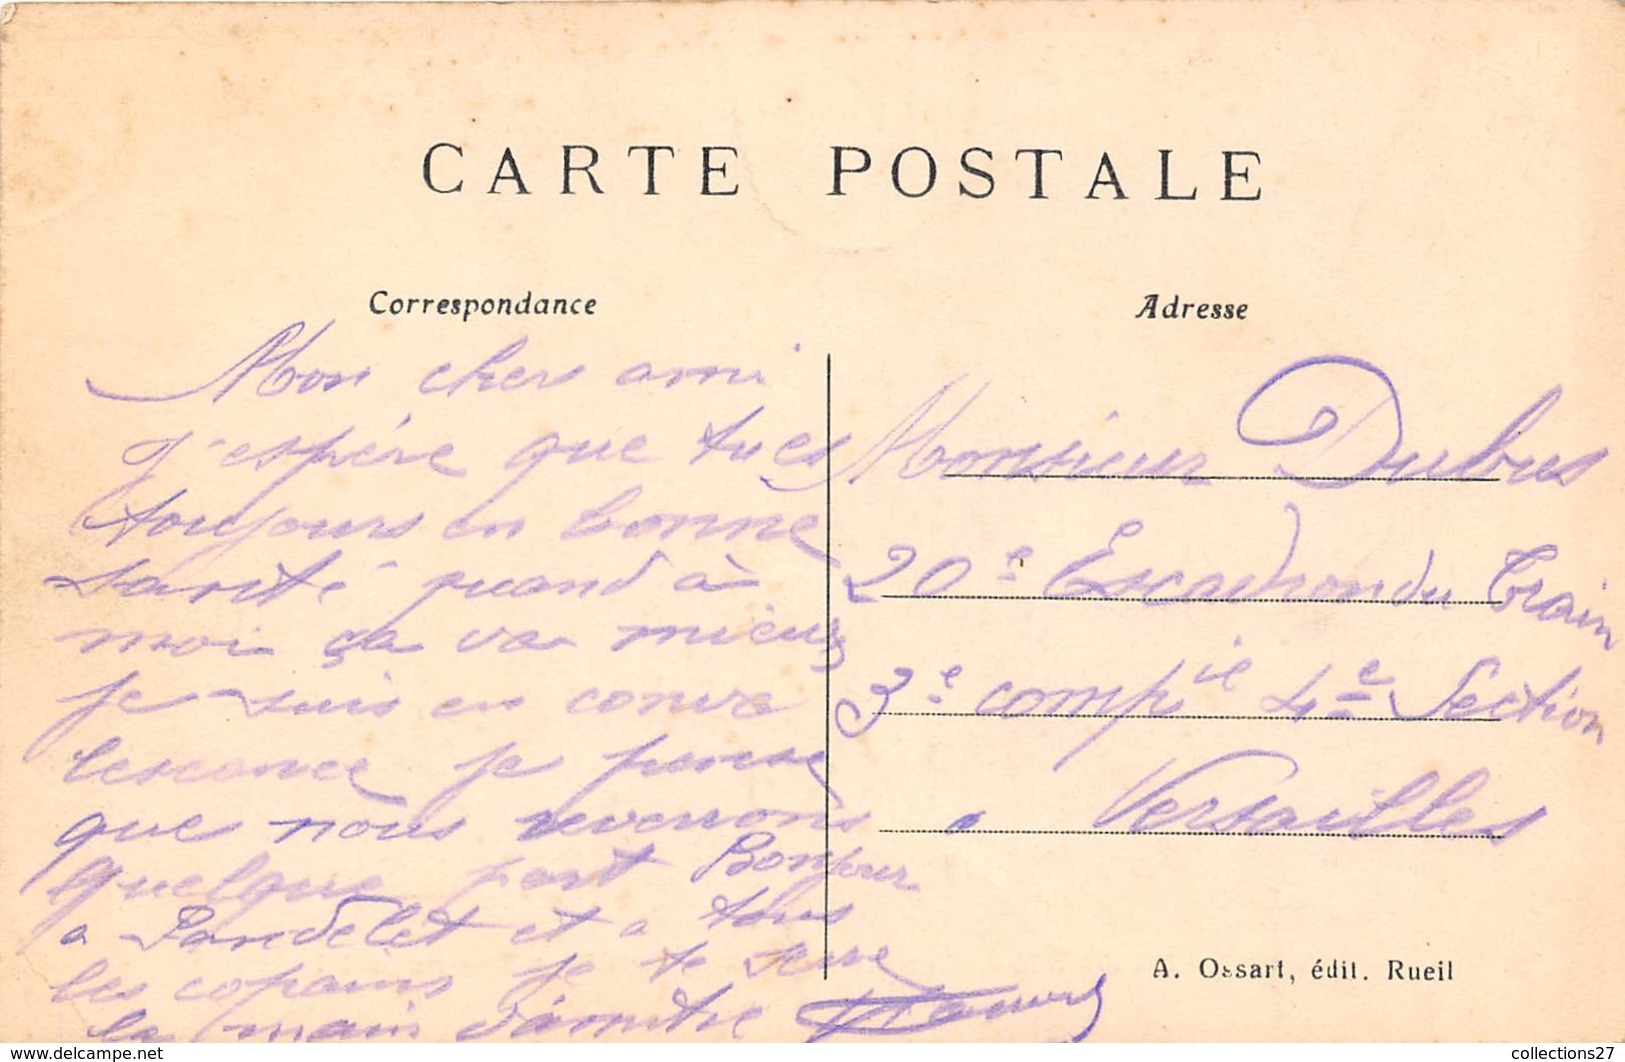 CARTE POSTALE
Correspondance
Mon cher ami
j'espère que tu es
toujours en bonne
santé quand à
moi ça va mieux
je suis en conva
lescence je pense
que nous reverrons
quelque part Bonjour
a Pandelet et a tous
les copains je te serre
la main
Adresse
Monsieur Dubus
20e Escadron du Train
3e compie 4e Section
a Versailles
A. Ossart, édit. Rueil
www.delcampe.net
collections27